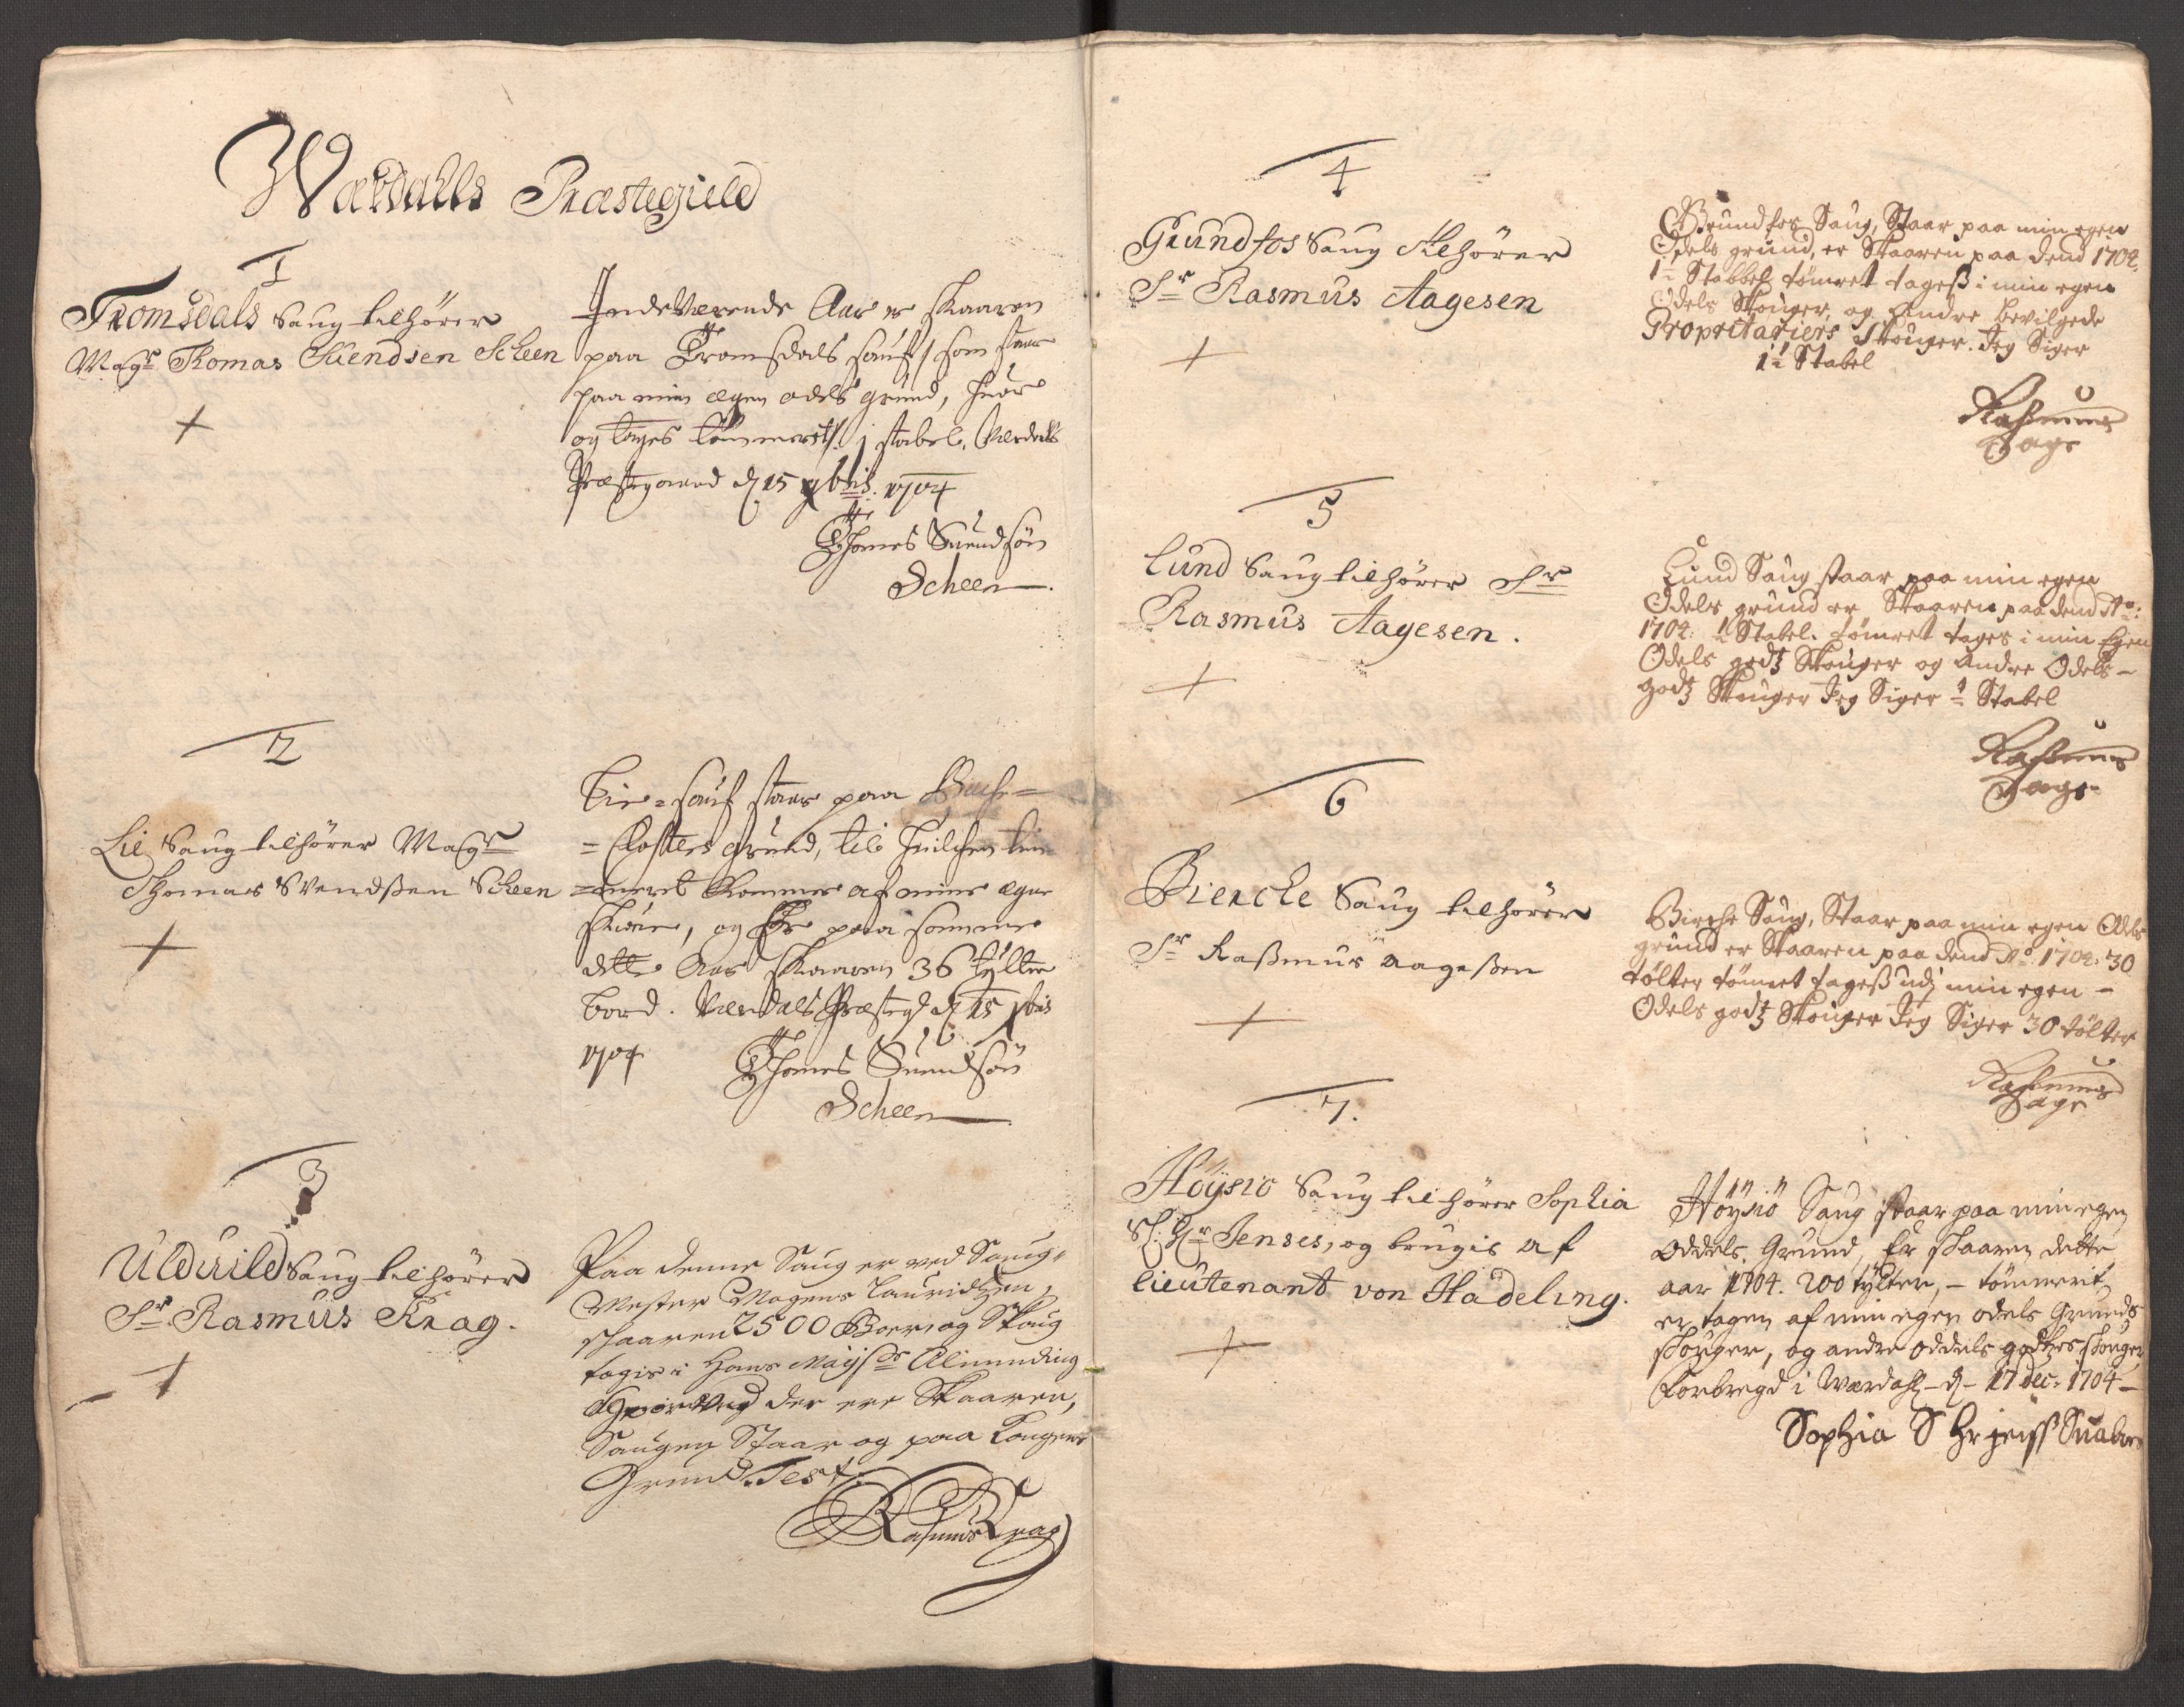 Wærdalls Præstegield
1
Tromsdals Saug tilhører
Magr Thomas Suendsen Scheen
+
Indeværende Aar er skaaren
paa Tromsdals sauf, som staar
paa min egen odels grund, huor
og tages tømmeret, 1 stabel. Værdals
Præstegaard d 15 xbris 1704
Thomes Suendsøn
Scheen.
2
Lie Saug tilhører Magr
Thomas Svendsßen Scheen
+
Lie-sauf staar paa
=Closters Grund, til huilchen tøm-
=meret kommer af mine egne
skoue, og er paa samme
dette Aar skaaren 36 tylter
bord. Værdals Præstegd d 15 xbris
1704 Thomes Suendsøn
Scheen
3
Ulduild Saug tilhører
Sr. Rasmus Krag.
+
Paa denne Saug er ved Saug-
Mester Mogens Lauridtzen,
skaaren 2500 Bord og Skoug
tagis i Hans Mayts Alminding
der ere Skaaren,
Saugen Staar og paa Kongens
Grund. Test
Rasmus Krag
4
Grundfos Saug tilhører
Sr Rasmus Aagesen
+
Grundfos Saug, Staar paa min egen
Odels grund, er Skaaren paa dend 1704
1½ Stabbel tømret tageß i min egen
Odels Skouger, og Andre bevilgede
Propritariers Skouger. Jeg Siger
1½ Stabel
Raßmus
Aags
5
Lund Saug tilhører Sr
Rasmus Aagesen.
+
Lund Saug staar paa min egen
Odels grund er Skaaren paa dend Ao:
1704: ½ Stabel. tømret tages i min Egen
Odels godtz Skouger og Andre Odels-
godtz Skouger Jeg Siger ½ Stabel
Raßmus
Aags
6
Biercke Saug tilhører
Sr Raßmus aageßen
+
Birche Saug, Staar paa min egen Odels
grund er Skaaren paa dend Ao 1704: 30
tölter tömret tageß udj min egen-
Odels godtz Skouger Jeg Siger 30 tölter
Raßmus
Aags
7.
Höysiö Saug tilhører Sophia
Sl. Hr Jenses, og brugis af
lieutenant von Hadeling.
+
Höysiö Saug staar paa min egen
Oddels Grund, Er skaaren dette
aar 1704. 200 tylter,- tømmerit
er tagen af min egen odels Grunds
skouger, og andre oddels godtzes skouger
forbregd i Wærdahl- d- 17 dec: 1704-
Sophia S Hr jenss Suabo